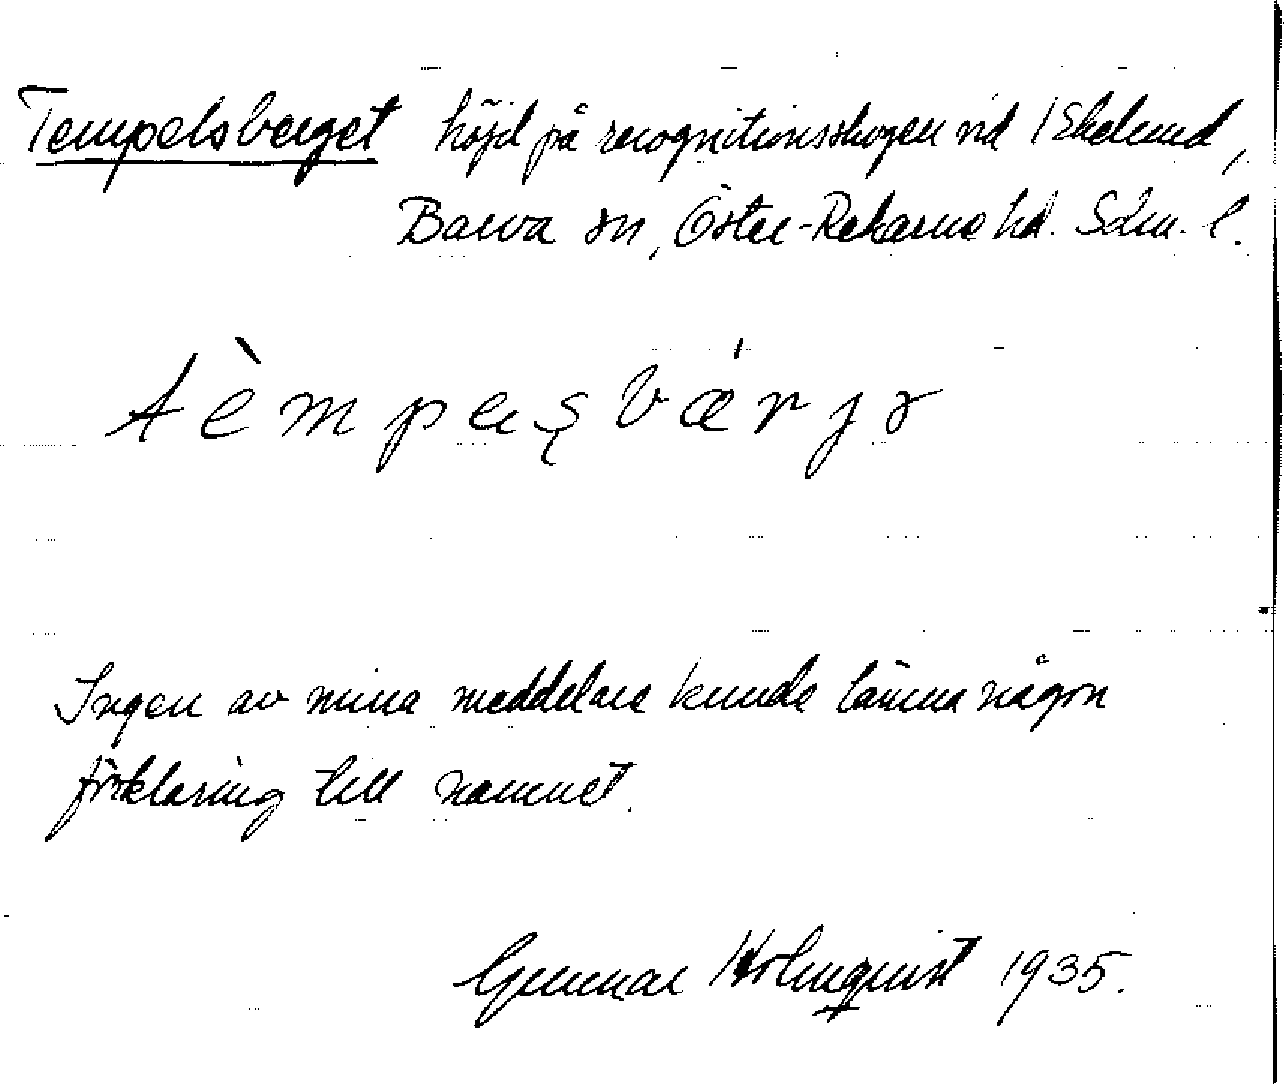 Tempelsberget höjd på recognitionsskogen vid 1 Ekelund,
Barva sn, Öster-Rekarne hd. Sdm. l.
tèmpəsbärjə
Ingen av mina meddelare kunde lämna någon
förklaring till namnet.
Gunnar Holmquist 1935.